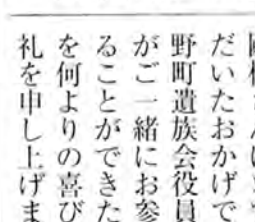 だいたおかげで
野町遺族会役員
がご一緒にお参
ることができた
を何よりの喜び
礼を申し上げま